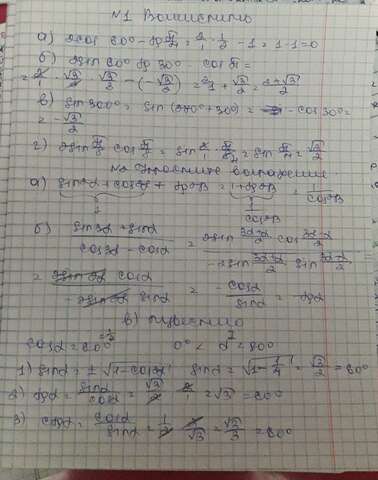 №1 Вычислить
а) 2cos 60° - tg π/4 = 2/1 · 1/2 - 1 = 1 - 1 = 0
б) 2sin 60° tg 30° - cos
= 2/1 · √3/2 · √3/3 - (-√3/2) = 2/1 + √3/2 = 2+√3/2
в) sin 300° = sin (270° + 30°) = - cos 30° =
= -√3/2
г) 2sin π/8 cos π/8 = sin 2/1 · π/8 = sin π/4 = √2/2
№2 Упростите выражение
а) sin²α + cos²α + tg²B = 1 + tg²B = 1/cos²B
1 1/cos²B
б) sin3α + sinα / cos3α - cosα = 2sin 3α+α/2 cos 3α-α/2 / -2sin 3α+α/2 sin 3α-α/2
= 2sin2α cosα / -2sin2α sinα = -cosα/sinα = -ctgα
cosα = 60° = 1/2 0° < α < 90°
1) sinα = ± √1 - cos²α sinα = √1 - 1/4 = √3/2 = 60°
2) tgα = sinα/cosα = √3/2 · 2 = √3 = 60°
3) ctgα = cosα/sinα = 1/2 · 2/√3 = √3/3 = 60°